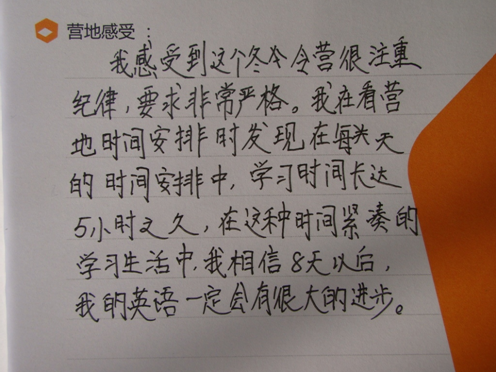 营地感受：
我感受到这个冬令令营很注重
纪律，要求非常严格。我在看营
地时间安排时发现在每天
的时间安排中，学习时间长达
5小时之久，在这种时间紧凑的
学习生活中，我相信8天以后，
我的英语一定会有很大的进步。